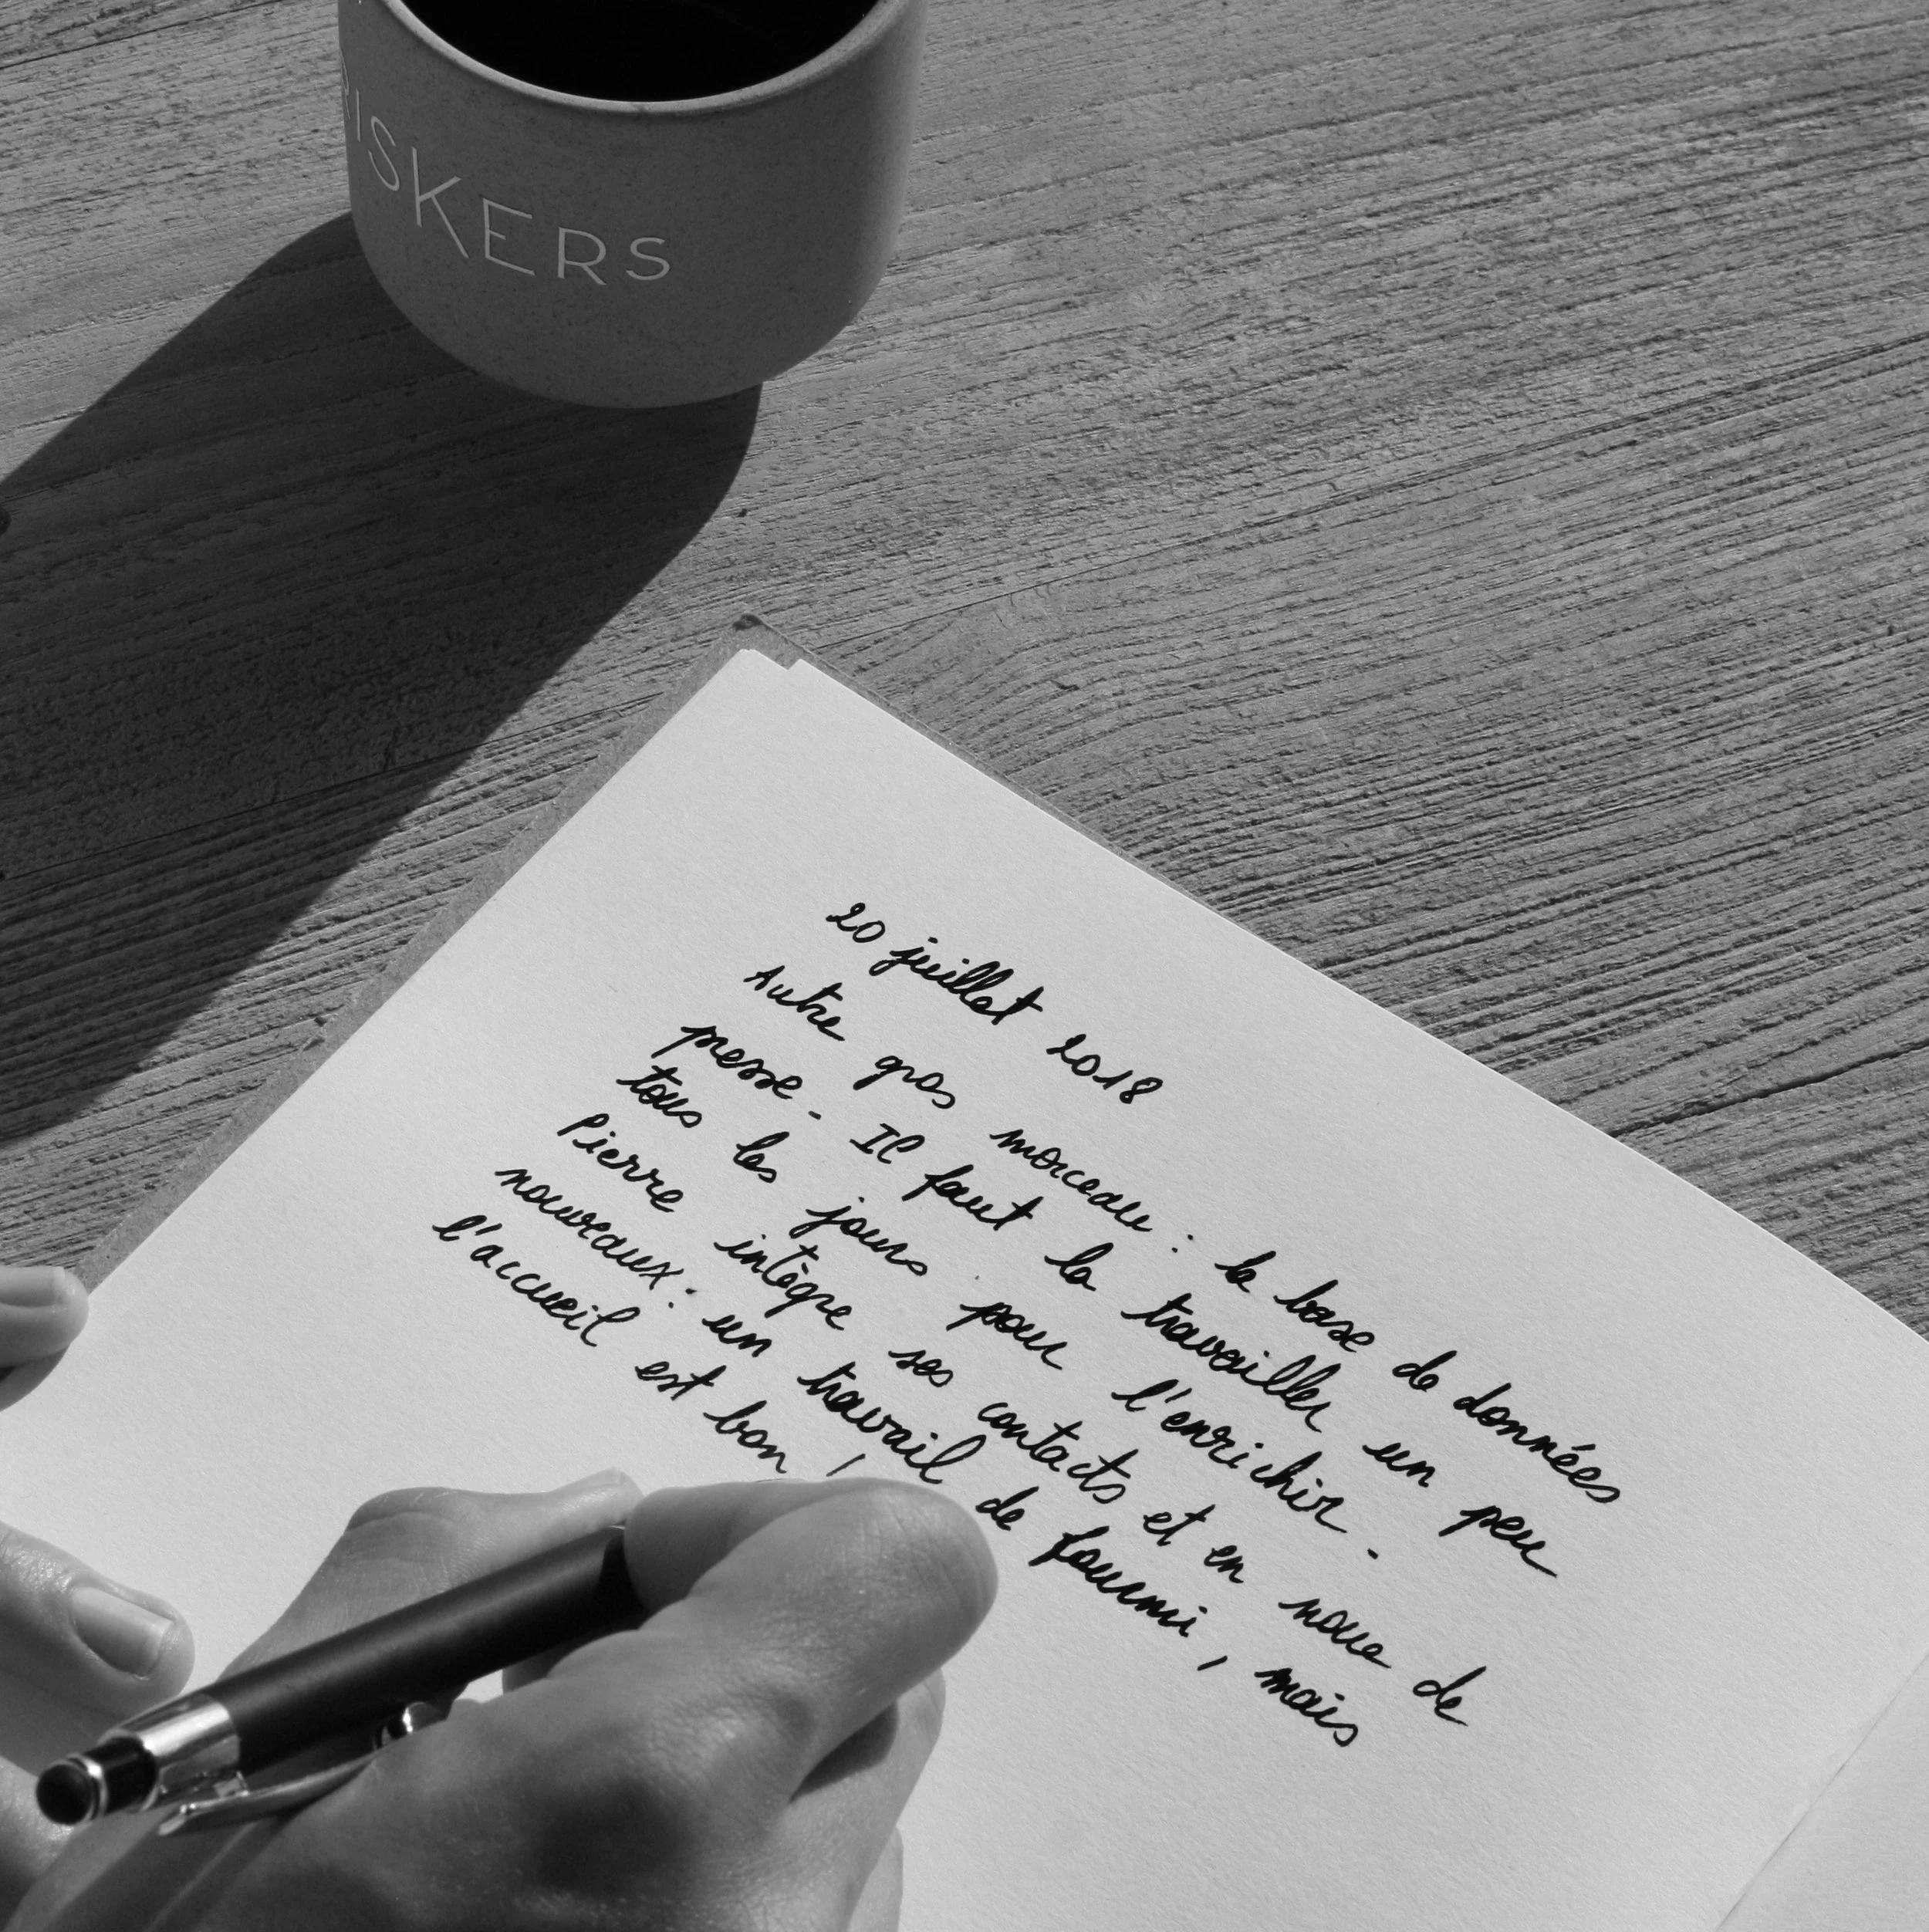 RISKERS
20 juillet 2018
Autre gros morceau : la base de données
presse. Il faut la travailler un peu
tous les jours pour l'enrichir.
Pierre intègre ses contacts et en noue de
nouveaux : un travail de fourmi, mais
l'accueil est bon !